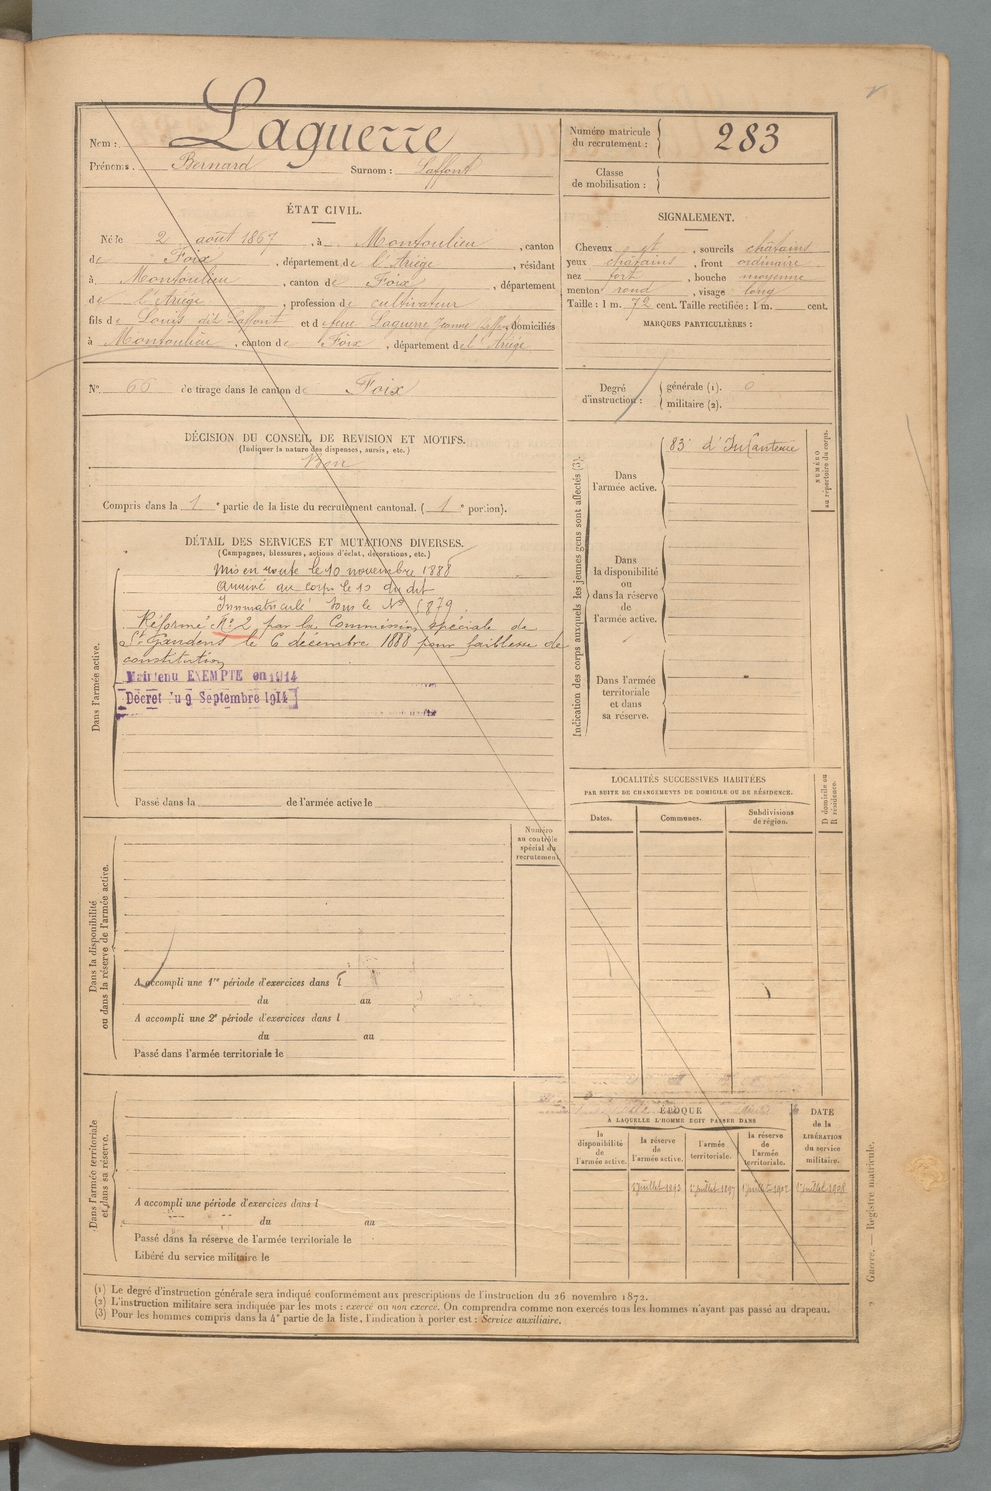 Nom : Laguerre
Prénoms . Bernard Surnom : Laffont
Numéro matricule
du recrutement : 283
Classe
de mobilisation :
ÉTAT CIVIL.
Né le 2 août 1867, à Montoulieu, canton
de Foix, département de l'Ariège, résidant
à Montoulieu, canton de Foix, département
de l'Ariège, profession de cultivateur
fils de Louis dit Laffont et de feue Laguerre Jeanne domiciliés
à Montoulieu, canton de Foix, département de l'Ariège
N° 66 de tirage dans le canton de Foix
SIGNALEMENT.
Cheveux , sourcils châtains
yeux châtains, front ordinaire
nez fort, bouche moyenne
menton rond, visage long
Taille : 1 m. 72 cent. Taille rectifiée : 1 m. cent.
MARQUES PARTICULIÈRES :
Degré
d'instruction :
générale (1). 0
militaire (2).
DÉCISION DU CONSEIL DE REVISION ET MOTIFS.
(Indiquer la nature des dispenses, sursis, etc.)
Bon
Compris dans la 1e partie de la liste du recrutement cantonal. (1e portion).
DÉTAIL DES SERVICES ET MUTATIONS DIVERSES.
(Campagnes, blessures, actions d'éclat, décorations, etc.)
Dans l'armée active.
Mis en route le 10 novembre 1888
Arrivé au corps le 10 du dit
Immatriculé sous le N° 5879.
Réformé N° 2 par la Commission spéciale de
St Gaudens le 6 décembre 1888 pour faiblesse de
constitution
Maintenu EXEMPTÉ en 1914
Décret du 9 Septembre 1914
Passé dans la de l'armée active le
Indication des corps auxquels les jeunes gens sont affectés (3).
NUMÉRO
au répertoire du corps.
Dans
l'armée active.
83e d'Infanterie
Dans
la disponibilité
ou
dans la réserve
de
l'armée active.
Dans l'armée
territoriale
et dans
sa réserve.
LOCALITÉS SUCCESSIVES HABITÉES
PAR SUITE DE CHANGEMENTS DE DOMICILE OU DE RÉSIDENCE.
Dates. Communes. Subdivisions
de région.
D domicile ou
R résidence.
Dans la disponibilité
ou dans la réserve de l'armée active.
Numéro
au contrôle
spécial du
recrutement
A accompli une 1re période d'exercices dans l
du au
A accompli une 2e période d'exercices dans l
du au
Passé dans l'armée territoriale le
Dans l'armée territoriale
et dans sa réserve.
A accompli une période d'exercices dans l
du au
Passé dans la réserve de l'armée territoriale le
Libéré du service militaire le
ÉPOQUE
À LAQUELLE L'HOMME DOIT PASSER DANS
la
disponibilité
de
l'armée active.
la réserve
de
l'armée active.
l'armée
territoriale.
la réserve
de
l'armée
territoriale.
DATE
de la
LIBÉRATION
du service
militaire.
1 juillet 1892 1 juillet 1897 1 juillet 1902 1 juillet 1908
(1) Le degré d'instruction générale sera indiqué conformément aux prescriptions de l'instruction du 26 novembre 1872.
(2) L'instruction militaire sera indiquée par les mots : exercé ou non exercé. On comprendra comme non exercés tous les hommes n'ayant pas passé au drapeau.
(3) Pour les hommes compris dans la 4e partie de la liste, l'indication à porter est : Service auxiliaire.
Guerre. — Registre matricule.